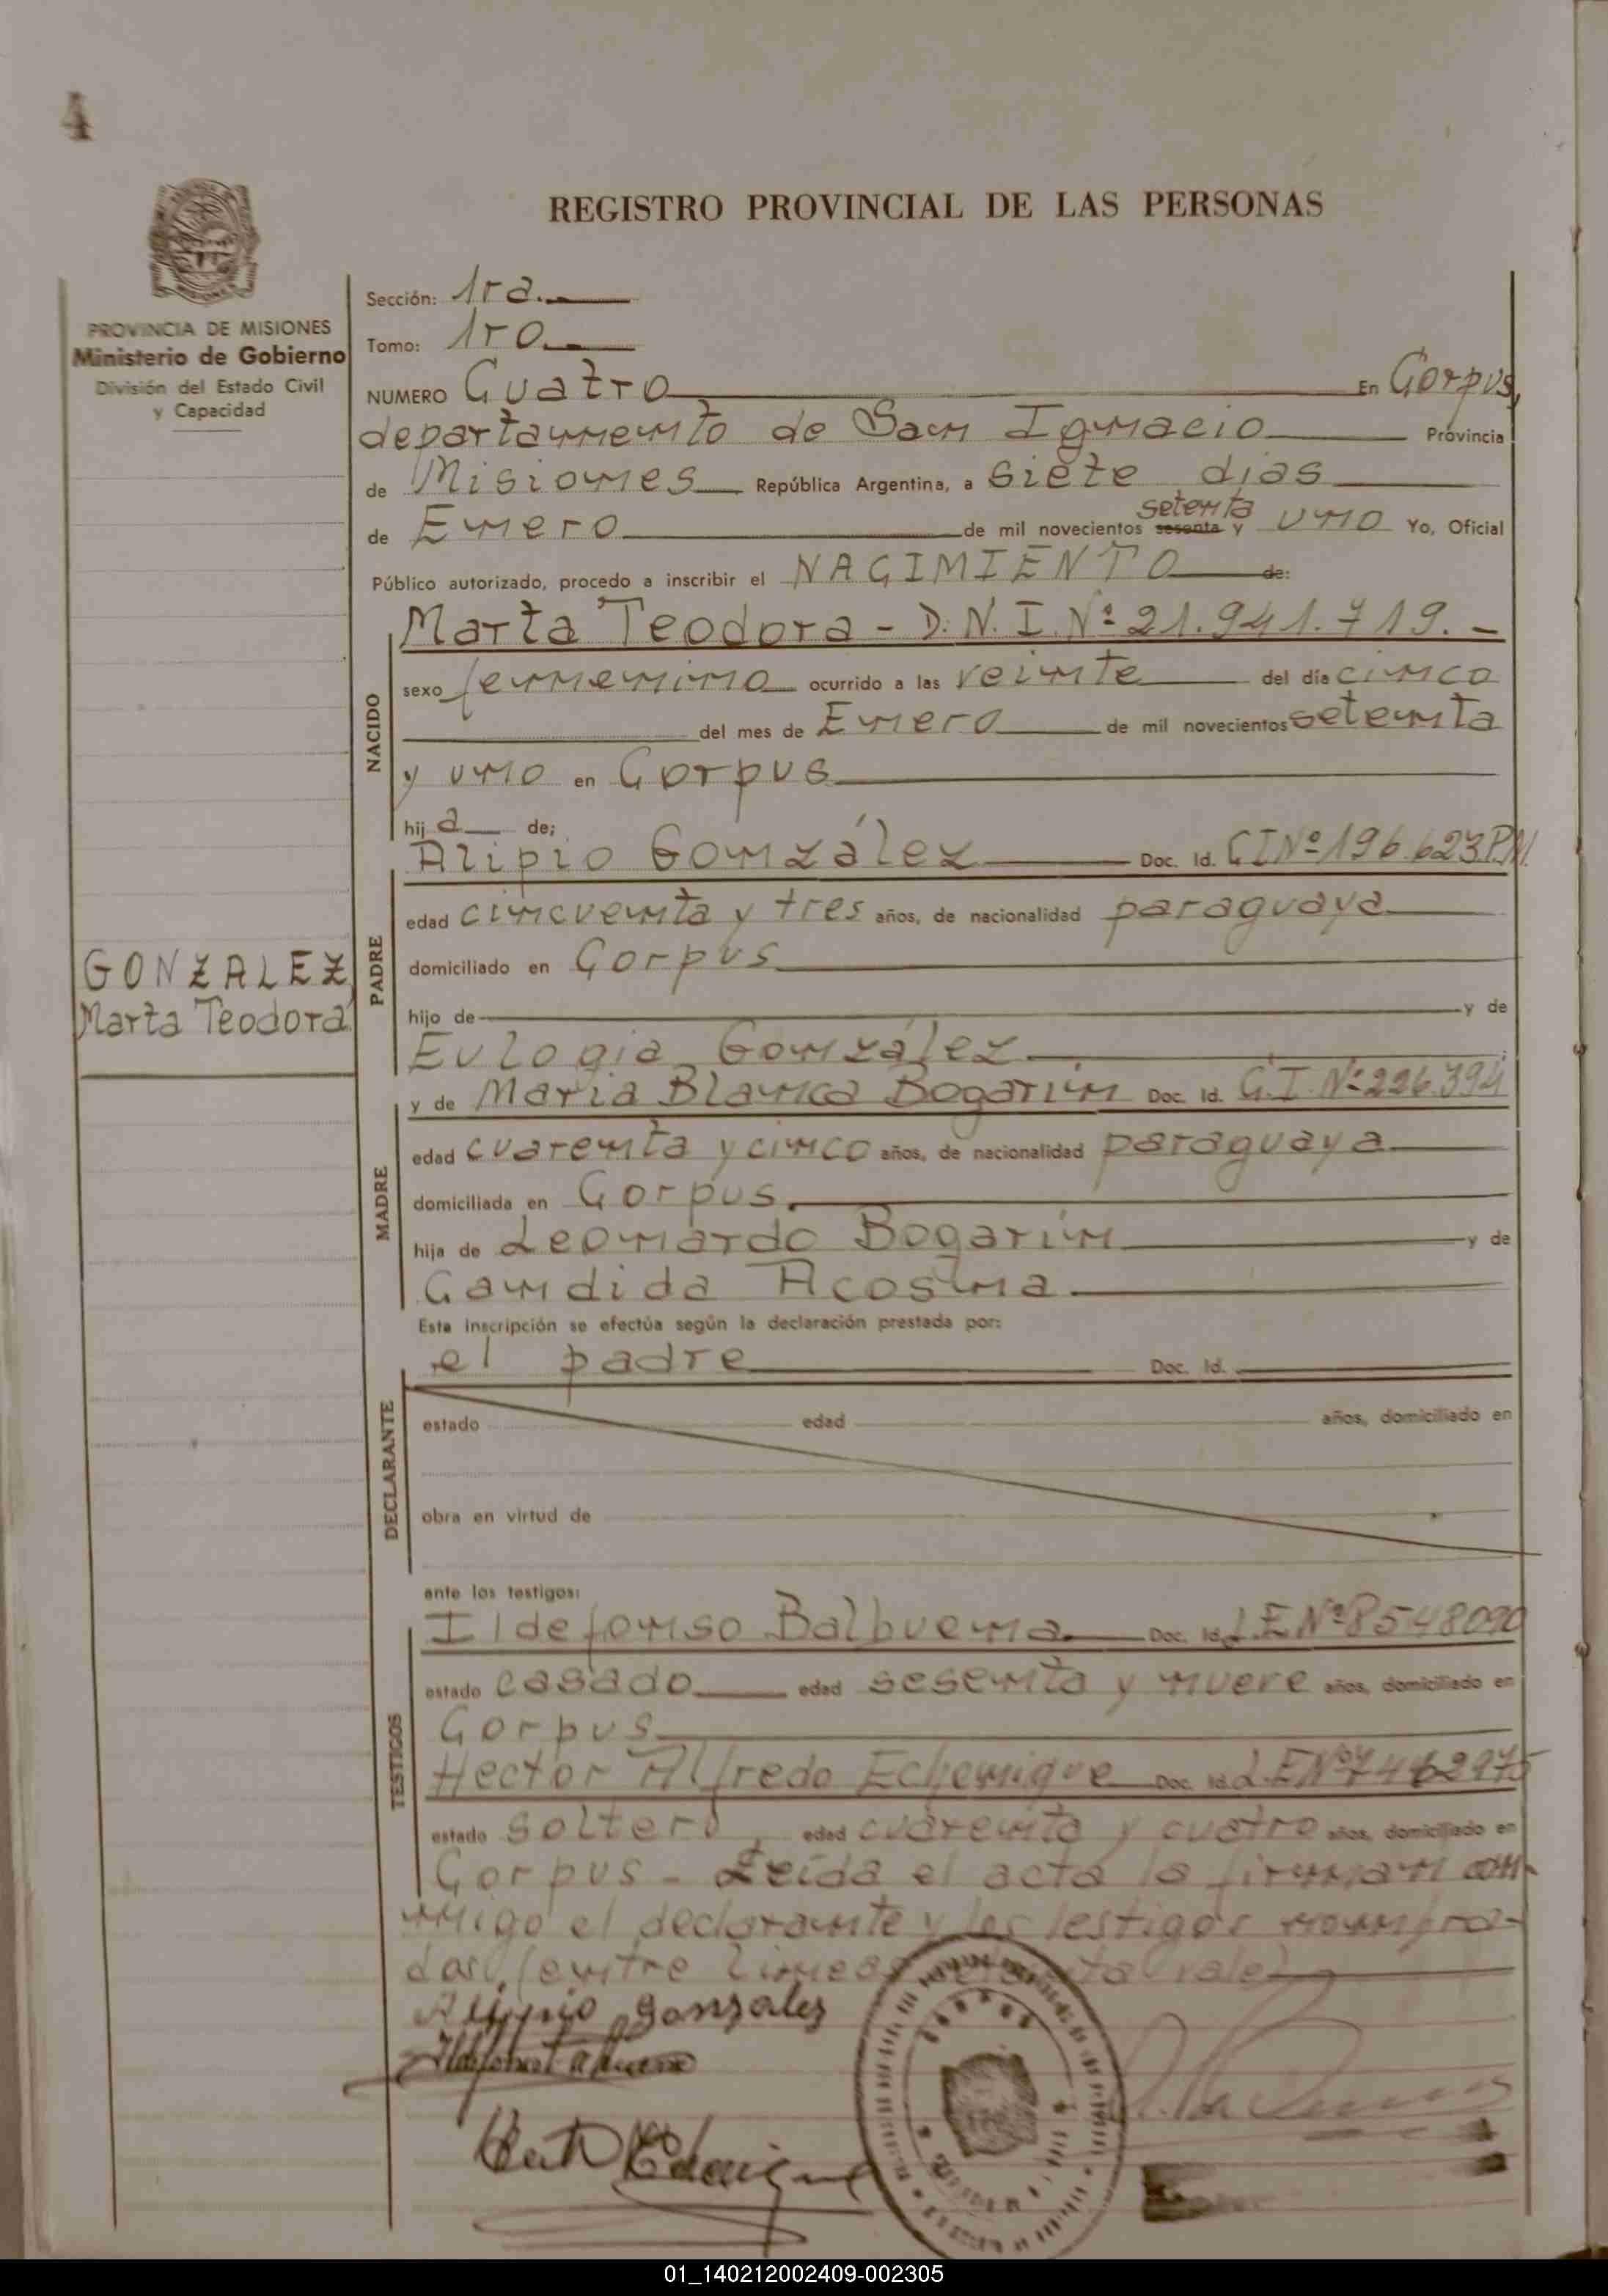 4
REGISTRO PROVINCIAL DE LAS PERSONAS
PROVINCIA DE MISIONES
Ministerio de Gobierno
División del Estado Civil
y Capacidad
Sección: 1ra.
Tomo: 1ro.
NUMERO Cuatro En Corpus,
departamento de San Ignacio Provincia
de Misiones República Argentina, a siete dias
setenta
de Enero de mil novecientos sesenta y uno Yo, Oficial
Público autorizado, procedo a inscribir el NACIMIENTO de:
NACIDO
Marta Teodora - D.N.I. Nº 21.941.719. -
sexo femenino ocurrido a las veinte del día cinco
del mes de Enero de mil novecientos setenta
y uno en Corpus
hija de;
GONZALEZ
Marta Teodora
PADRE
Alipio González Doc. Id. CI Nº 196.623 P.N.
edad cincuenta y tres años, de nacionalidad paraguaya
domiciliado en Corpus
hijo de y de
Eulogia González
MADRE
y de Maria Blanca Bogarín Doc. Id. C.I. Nº 226.394
edad cuarenta y cinco años, de nacionalidad paraguaya
domiciliada en Corpus.
hija de Leonardo Bogarín y de
Candida
Esta inscripción se efectúa según la declaración prestada por:
DECLARANTE
el padre Doc. Id.
estado edad años, domiciliado en
obra en virtud de
ante los testigos:
TESTIGOS
Ildefonso Balbuena Doc. Id. L.E Nº 8548090
estado casado edad sesenta y nueve años, domiciliado en
Corpus
Hector Alfredo Echenique Doc. Id. L.E Nº
estado soltero, edad cuarenta y cuatro años, domiciliado en
Corpus - Leída el acta la firman con
migo el declarante y los testigos nombra-
dos. (entre lineas setenta vale)
Alipio Gonzales
Echenique
01_140212002409-002305